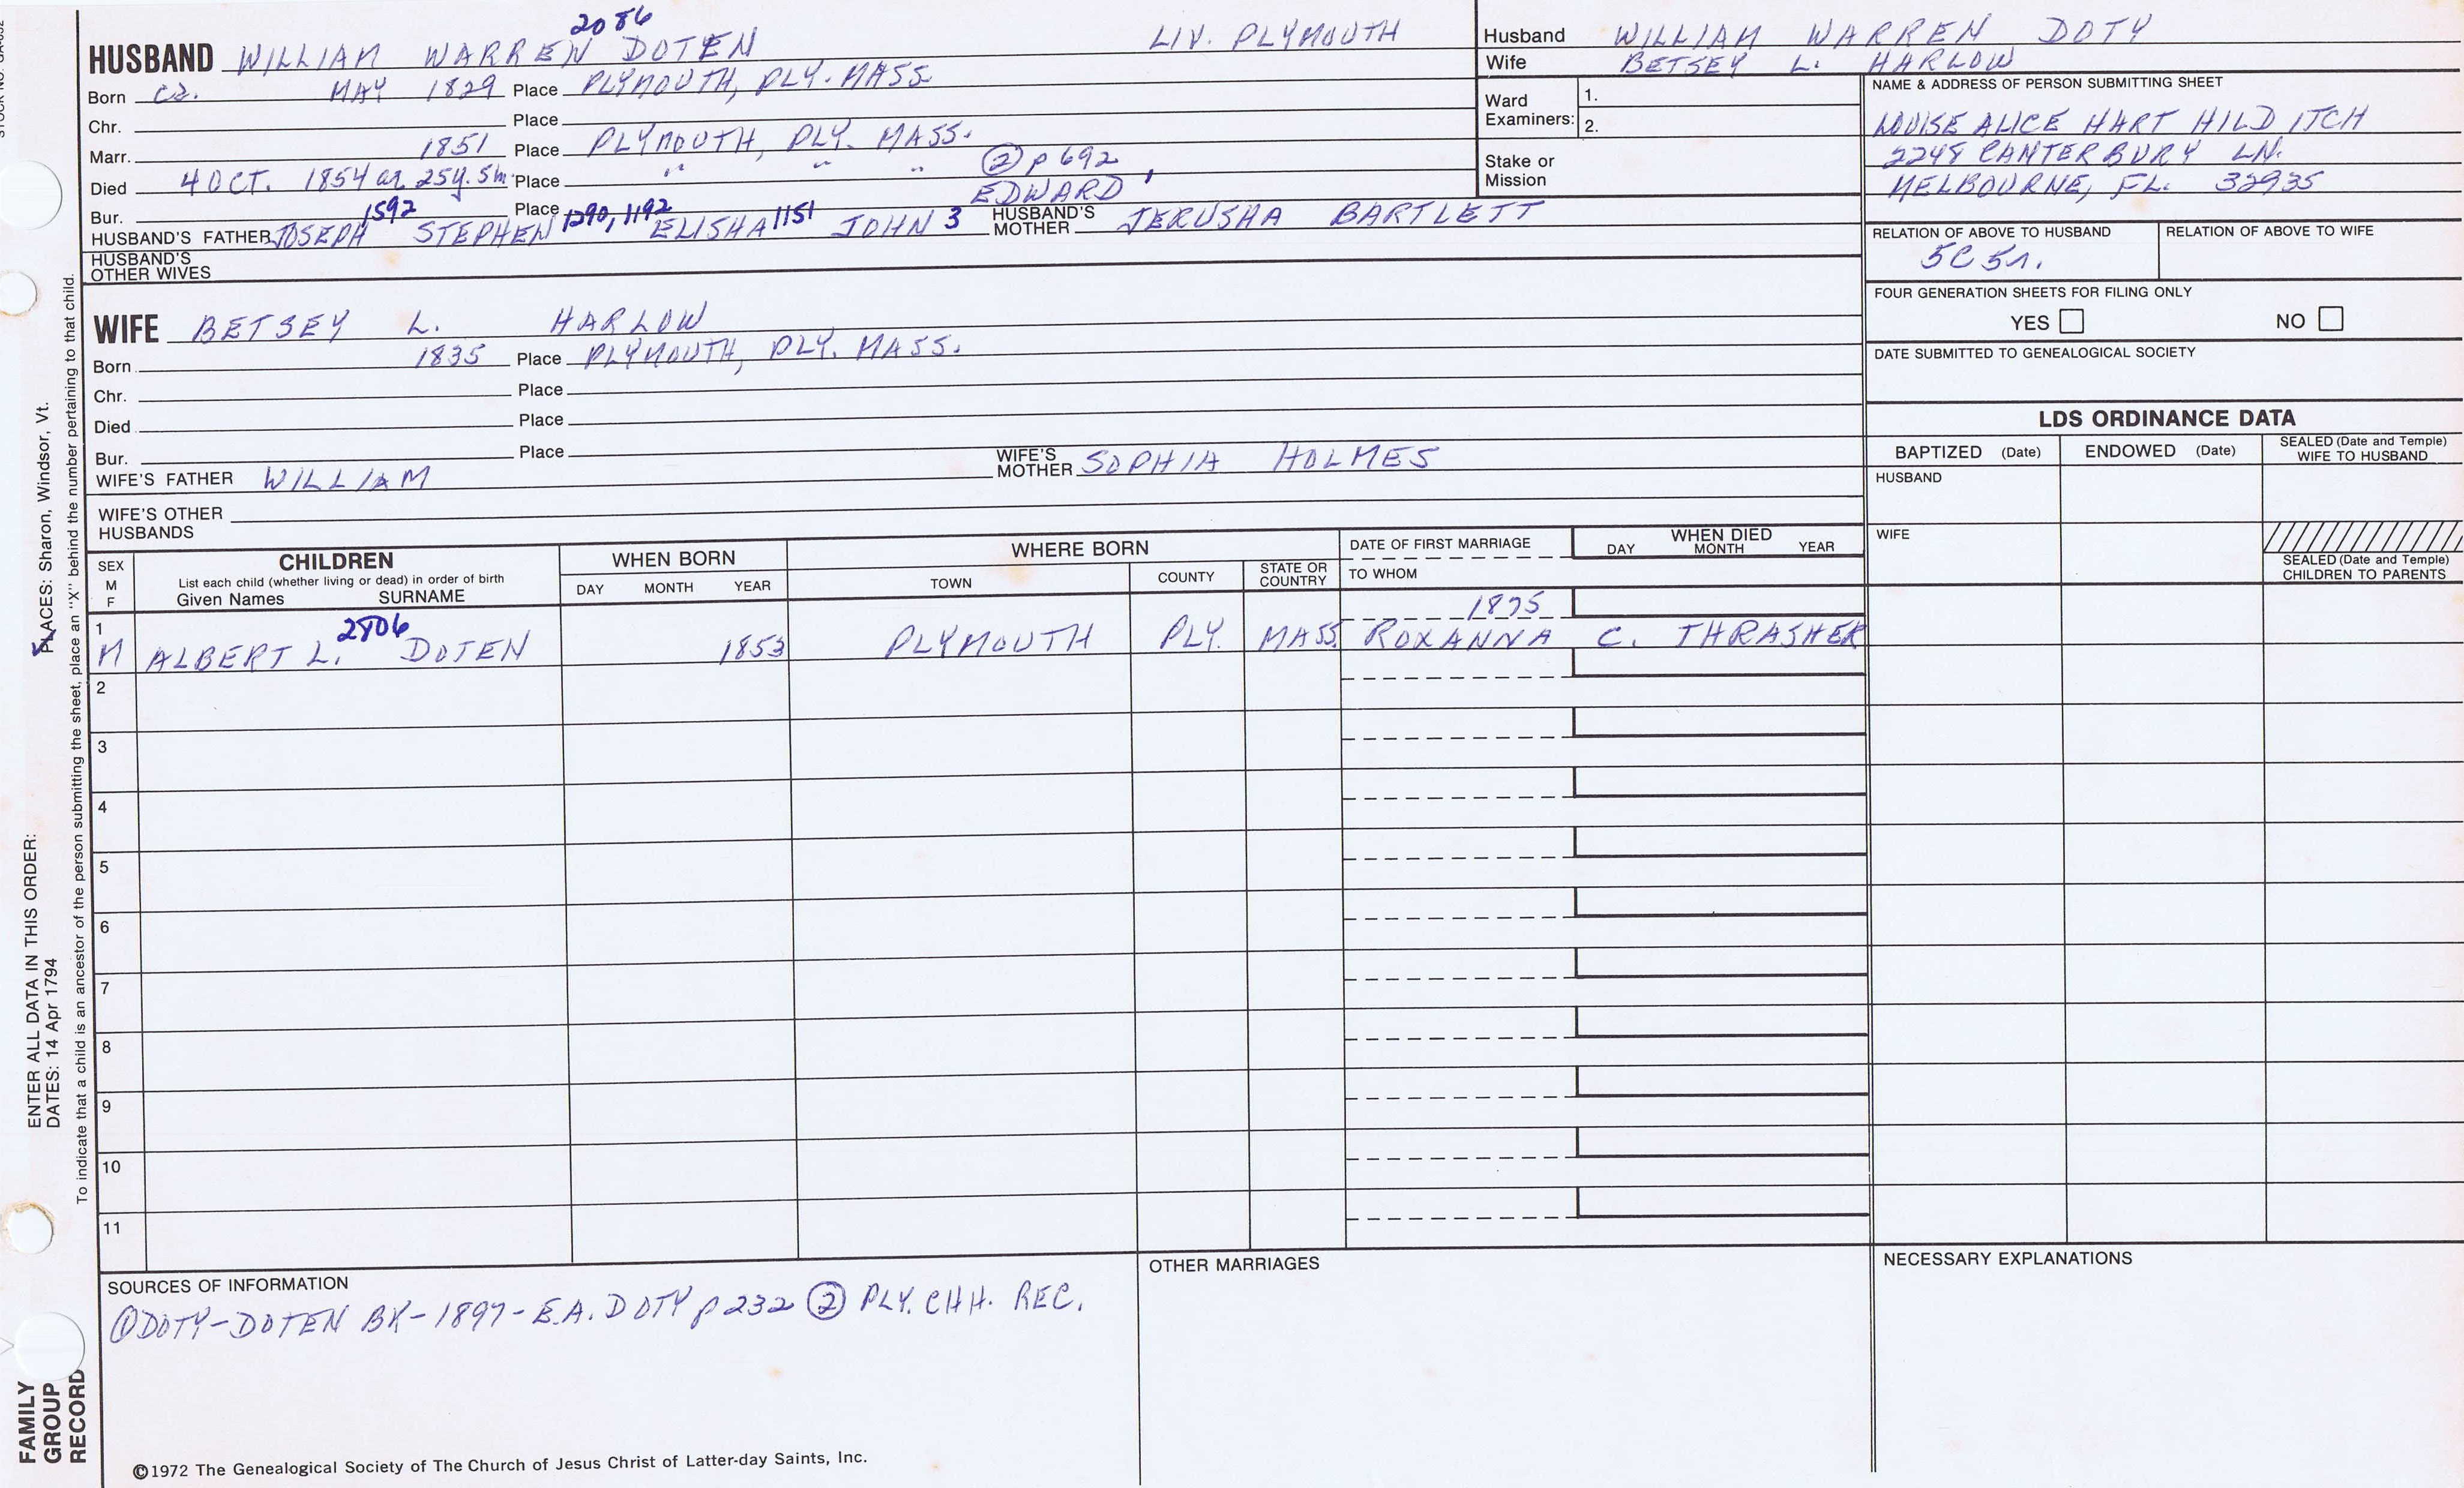 2086
HUSBAND WILLIAM WARREN DOTEN LIV. PLYMOUTH
Born ca. MAY 1829 Place PLYMOUTH, PLY. MASS
Chr. Place
Marr. 1851 Place PLYMOUTH, PLY. MASS.
Died 4 OCT. 1854 at 25y. 5m. Place " " " ② p 692
Bur. Place
EDWARD 1
1592 1290, 1192 1151
HUSBAND'S FATHER JOSEPH STEPHEN ELISHA JOHN 3 HUSBAND'S MOTHER JERUSHA BARTLETT
HUSBAND'S OTHER WIVES
WIFE BETSEY L. HARLOW
Born 1835 Place PLYMOUTH, PLY. MASS.
Chr. Place
Died Place
Bur. Place
WIFE'S FATHER WILLIAM WIFE'S MOTHER SOPHIA HOLMES
WIFE'S OTHER HUSBANDS
Husband WILLIAM WARREN DOTY
Wife BETSEY L. HARLOW
Ward Examiners: 1.
2.
Stake or Mission
NAME & ADDRESS OF PERSON SUBMITTING SHEET
LOUISE ALICE HART HILDITCH
2248 CANTERBURY LN.
MELBOURNE, FL. 32935
RELATION OF ABOVE TO HUSBAND RELATION OF ABOVE TO WIFE
5C 5r.
FOUR GENERATION SHEETS FOR FILING ONLY
YES NO
DATE SUBMITTED TO GENEALOGICAL SOCIETY
LDS ORDINANCE DATA
BAPTIZED (Date) ENDOWED (Date) SEALED (Date and Temple) WIFE TO HUSBAND
HUSBAND
WIFE
SEALED (Date and Temple) CHILDREN TO PARENTS
SEX M F
CHILDREN
List each child (whether living or dead) in order of birth
Given Names SURNAME
WHEN BORN
DAY MONTH YEAR
WHERE BORN
TOWN COUNTY STATE OR COUNTRY
DATE OF FIRST MARRIAGE
TO WHOM
WHEN DIED
DAY MONTH YEAR
1 2806 1875
M ALBERT L. DOTEN 1853 PLYMOUTH PLY. MASS. ROXANNA C. THRASHER
2
3
4
5
6
7
8
9
10
11
SOURCES OF INFORMATION
① DOTY-DOTEN BK-1897-E.A. DOTY p 232 ② PLY. CHH. REC.
OTHER MARRIAGES
NECESSARY EXPLANATIONS
©1972 The Genealogical Society of The Church of Jesus Christ of Latter-day Saints, Inc.
ENTER ALL DATA IN THIS ORDER:
DATES: 14 Apr 1794 PLACES: Sharon, Windsor, Vt.
To indicate that a child is an ancestor of the person submitting the sheet, place an "X" behind the number pertaining to that child.
FAMILY
GROUP
RECORD